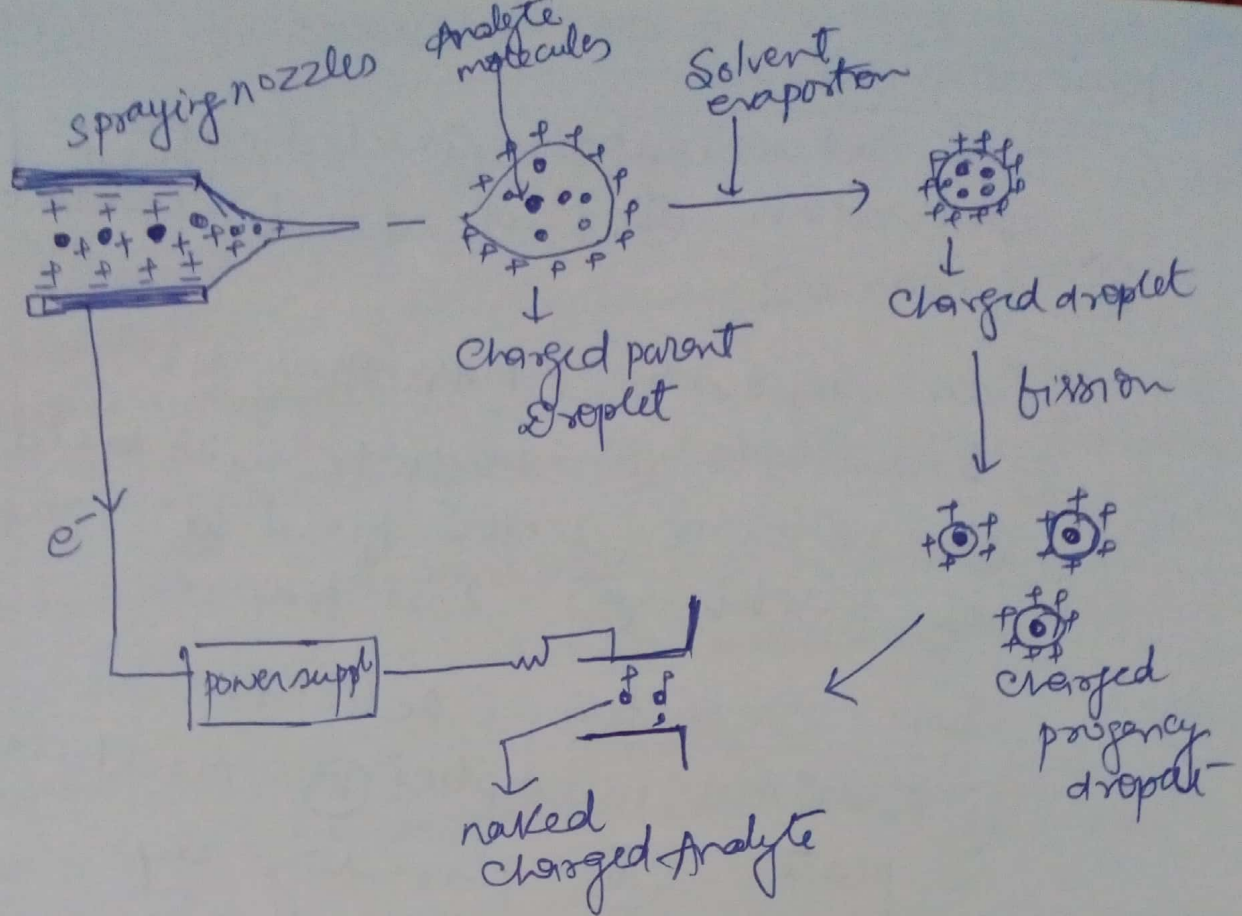 spraying nozzles
Analyte
molecules
Solvent
evaportion
Charged parent
Droplet
Charged droplet
fission
e-
power suppl
Charged
progency
droplet
naked
Charged Analyte